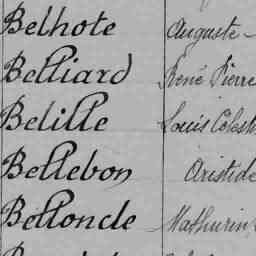 Belhote Auguste
Belliard René Pierre
Belille Louis Célest
Bellebon Aristide
Belloncle Mathurin